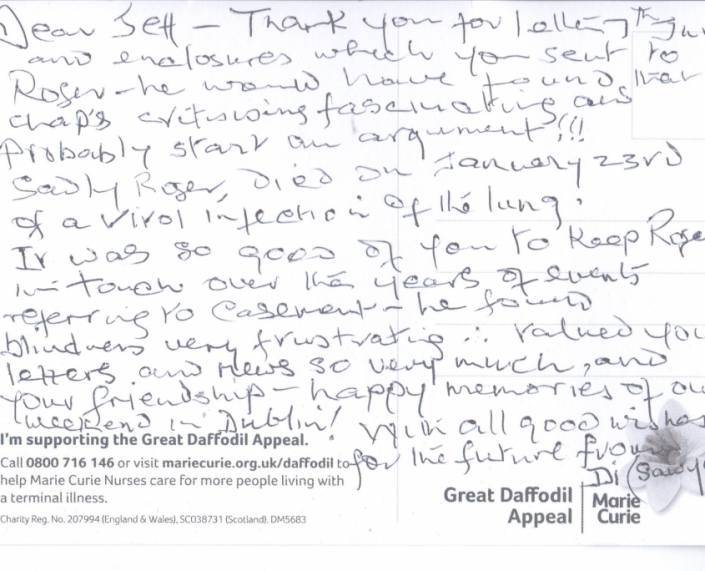 Dear Jeff - Thank you for letting
and enclosures which you sent to
Roger - he would have found that
chap's critisising fascinating and
probably start an argument!!!
Sadly Roger, Died on January 23rd
of a viral infection of the lung.
It was so good of you to keep Roge
in touch over the years of events
referring to Casement - he found
blindness very frustrating ∴ valued you
letters and news so very much, and
your friendship - happy memories of ou
weekend in Dublin! With all good wishes
for the future from
Di (Sawy
I'm supporting the Great Daffodil Appeal.
Call 0800 716 146 or visit mariecurie.org.uk/daffodil to
help Marie Curie Nurses care for more people living with
a terminal illness.
Charity Reg. No. 207994 (England & Wales), SC038731 (Scotland). DM5683
Great Daffodil
Appeal
Marie
Curie